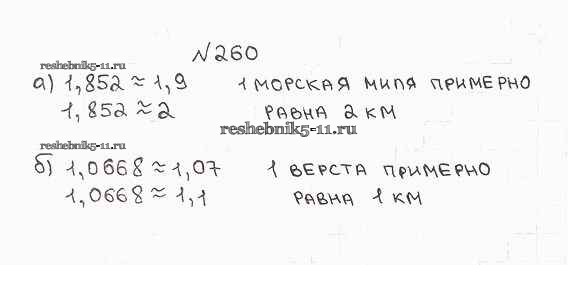 №260
reshebnik5-11.ru
а) 1,852 ≈ 1,9 1 МОРСКАЯ МИЛЯ ПРИМЕРНО
1,852 ≈ 2 РАВНА 2 КМ
reshebnik5-11.ru
reshebnik5-11.ru
б) 1,0668 ≈ 1,07 1 ВЕРСТА ПРИМЕРНО
1,0668 ≈ 1,1 РАВНА 1 КМ